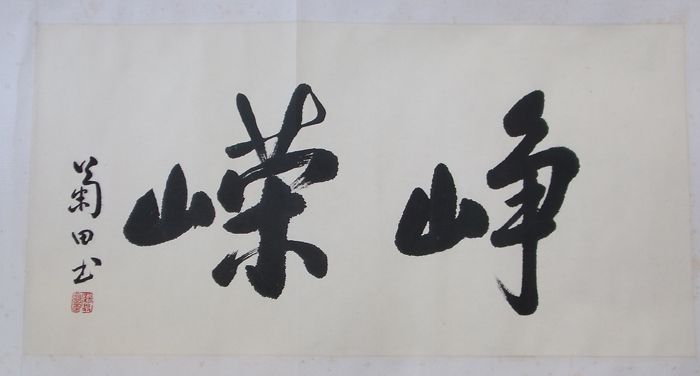 峥嵘
菊田书